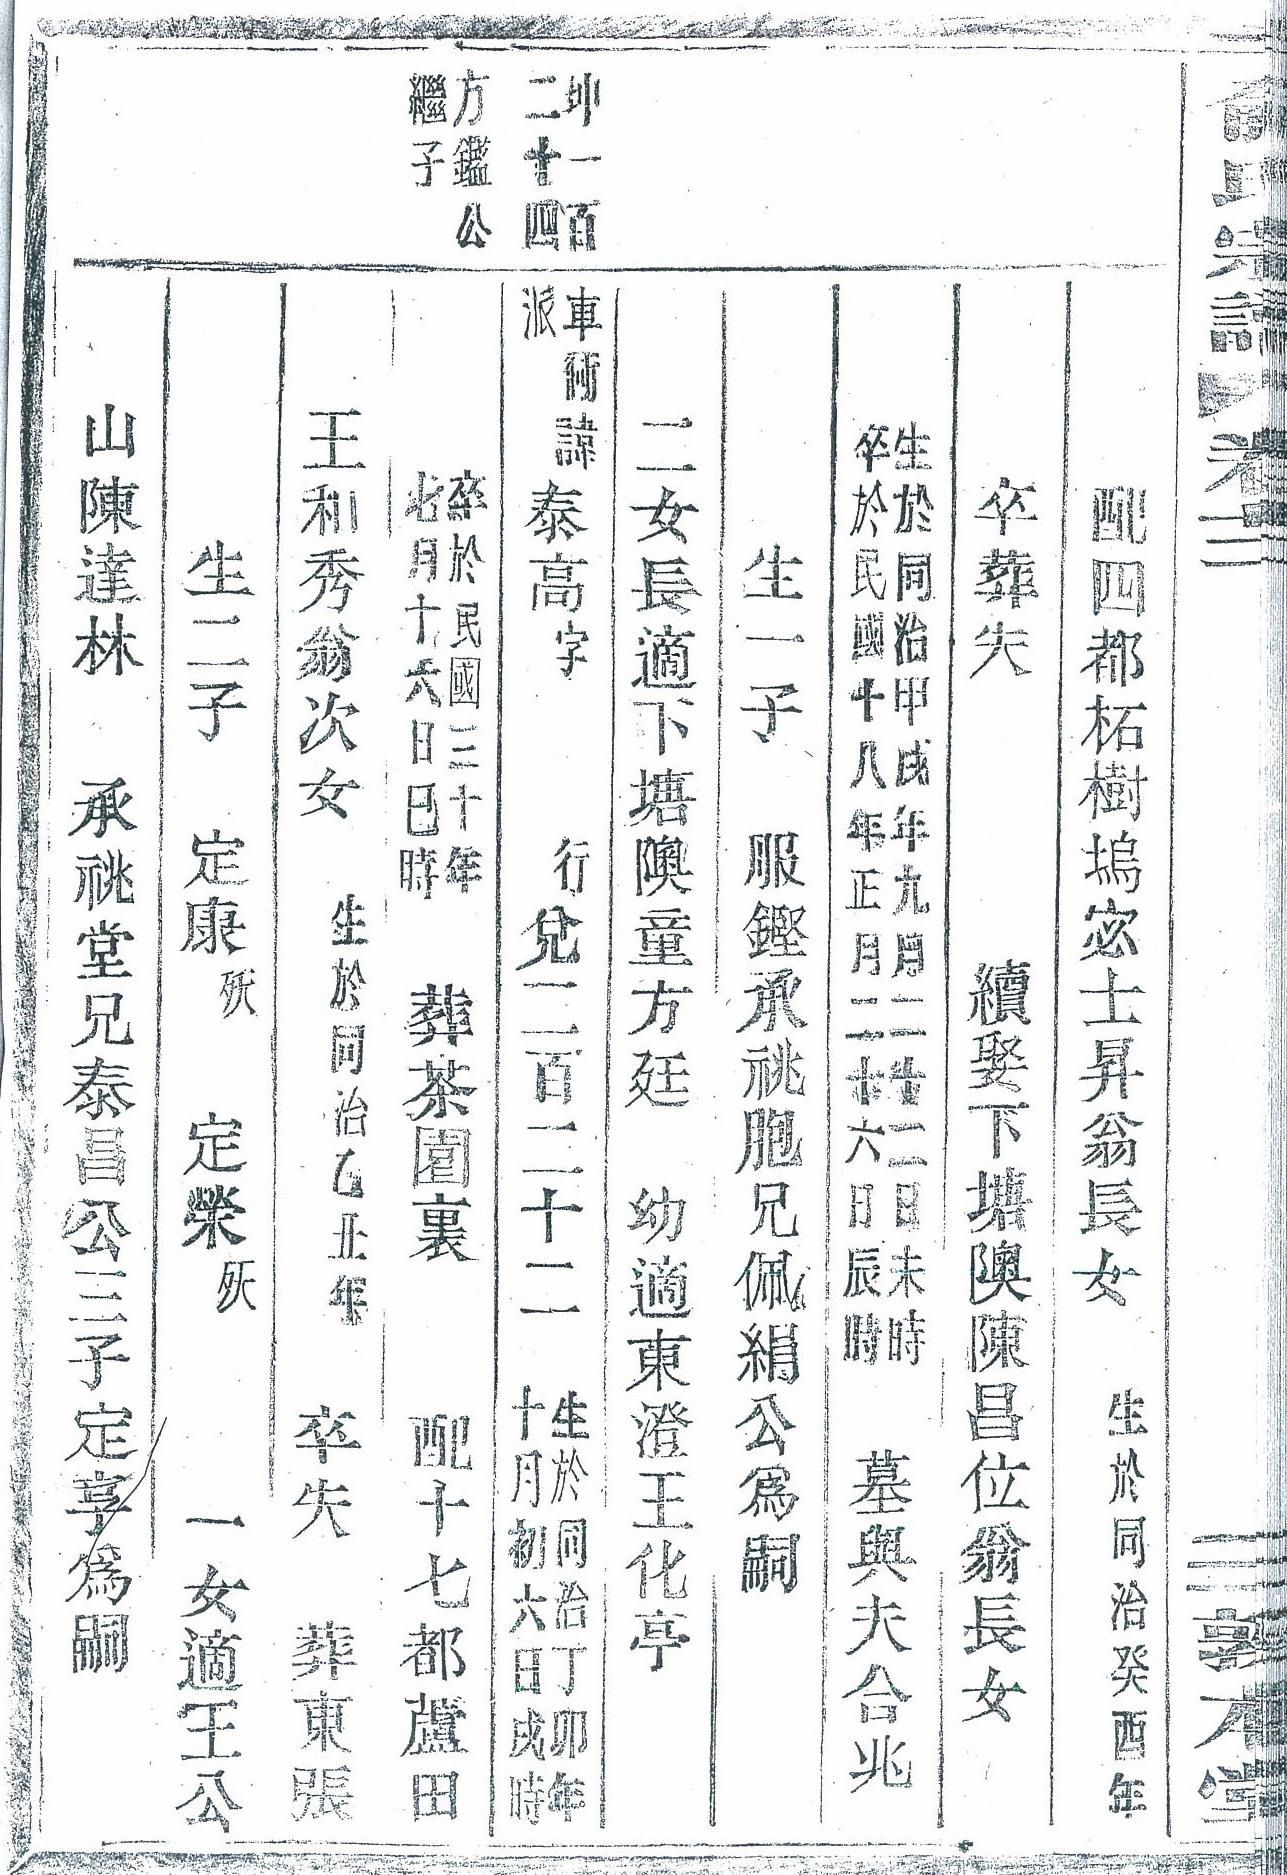 氏宗譜 卷三
三 敦本堂
配四都柘樹塢宓士昇翁長女 生於同治癸酉年
卒葬失 續娶下塘隩陳昌位翁長女
生於同治甲戌年九月二十二日未時
卒於民國十八年正月二十六日辰時
墓與夫合兆
生一子 服鏗承祧胞兄佩絹公為嗣
二女長適下塘隩童方廷 幼適東澄王化亭
坤一百
二十四
車衕諱
派
泰高字 行兌二百二十二
生於同治丁卯年
十月初六日戌時
方鑑公
繼子
卒於民國三十年
七月十六日巳時
葬茶園裏 配十七都蘆田
王和秀翁次女 生於同治乙丑年 卒失 葬東張
生二子 定康殀 定榮殀 一女適王公
山陳達林 承祧堂兄泰昌公三子定享為嗣